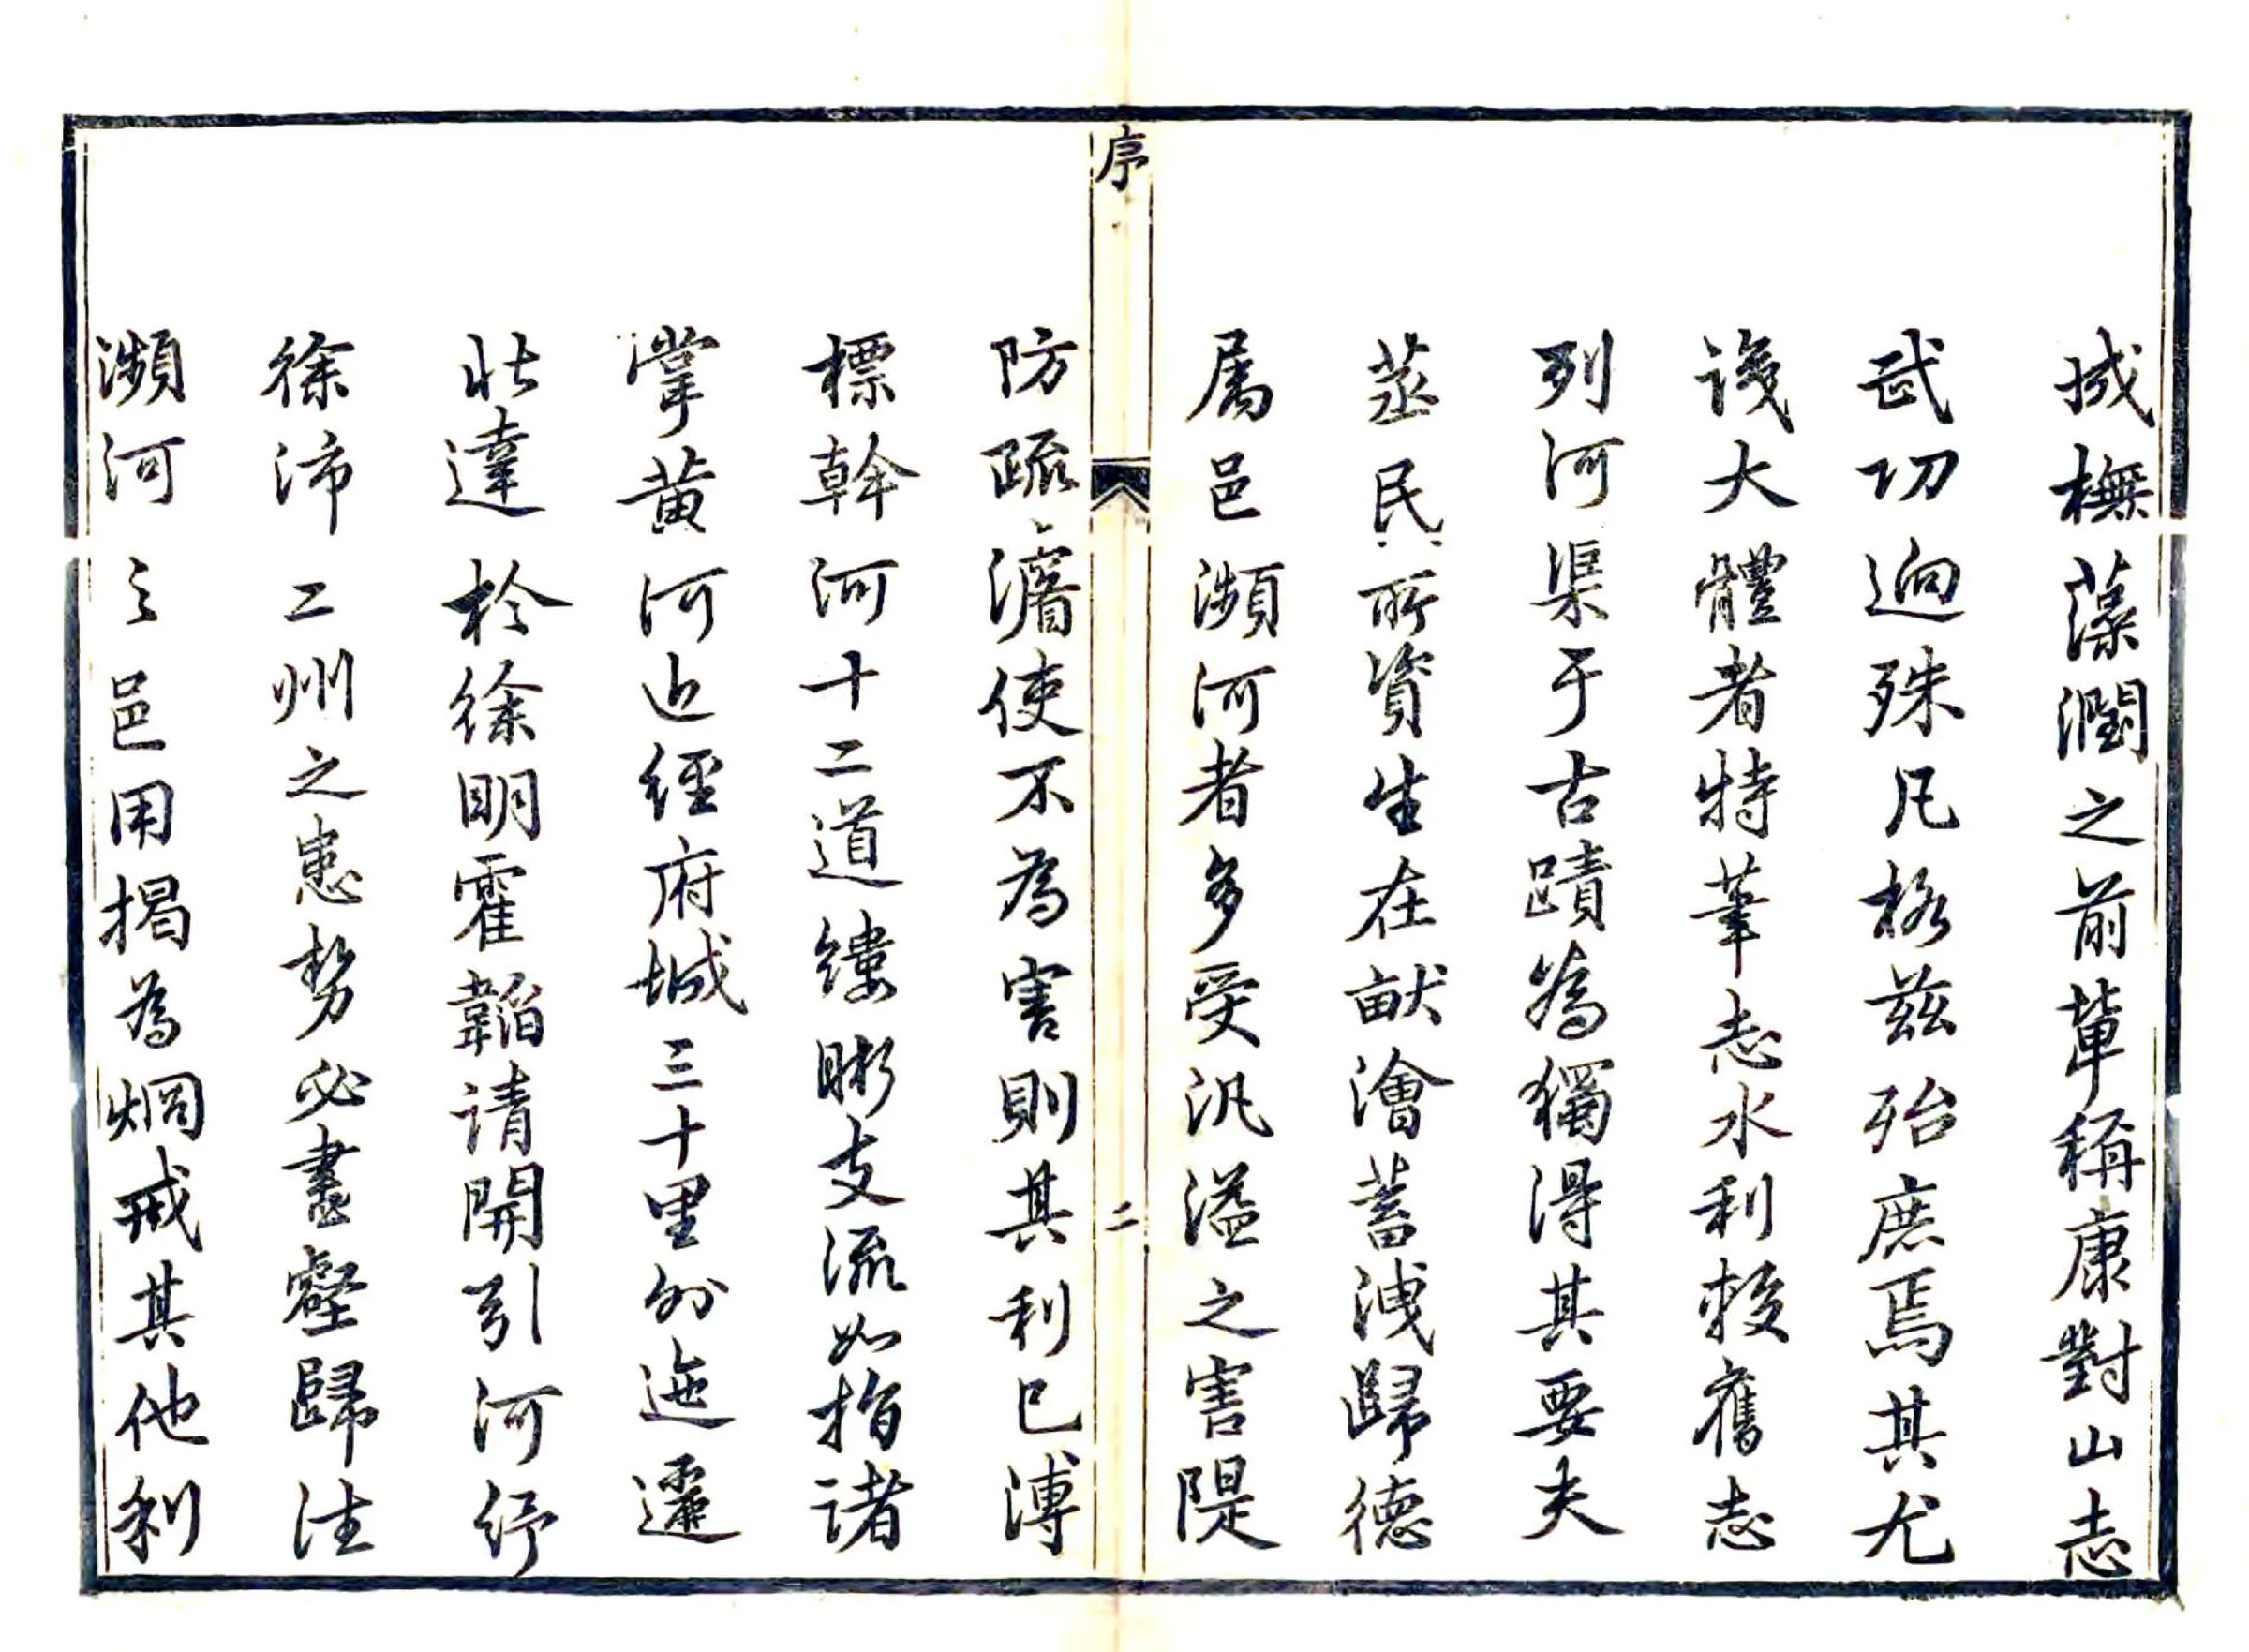 棫橅藻潤之前輩稱康對山志
武功逈殊凡格兹殆庶焉其尤
識大體者特筆志水利較舊志
列河渠于古蹟為獨得其要夫
蒸民所資生在畎澮蓄洩歸德
属邑瀕河者多受汎溢之害隄
序
二
防疏濬使不為害則其利已溥
標幹河十二道縷晰支流如指諸
掌黄河近經府城三十里外迤邐
北達於徐明霍韜請開引河紓
徐沛二州之患勢必盡壑歸注
瀕河之邑用揭為烱戒其他利